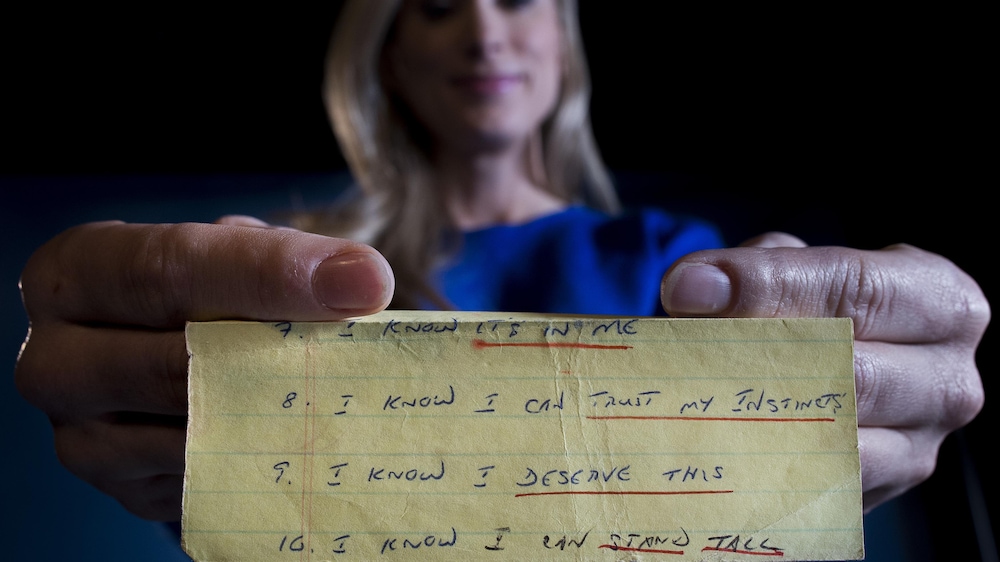 7. I KNOW IT'S IN ME
8. I KNOW I CAN TRUST MY INSTINCTS
9. I KNOW I DESERVE THIS
10. I KNOW I CAN STAND TALL